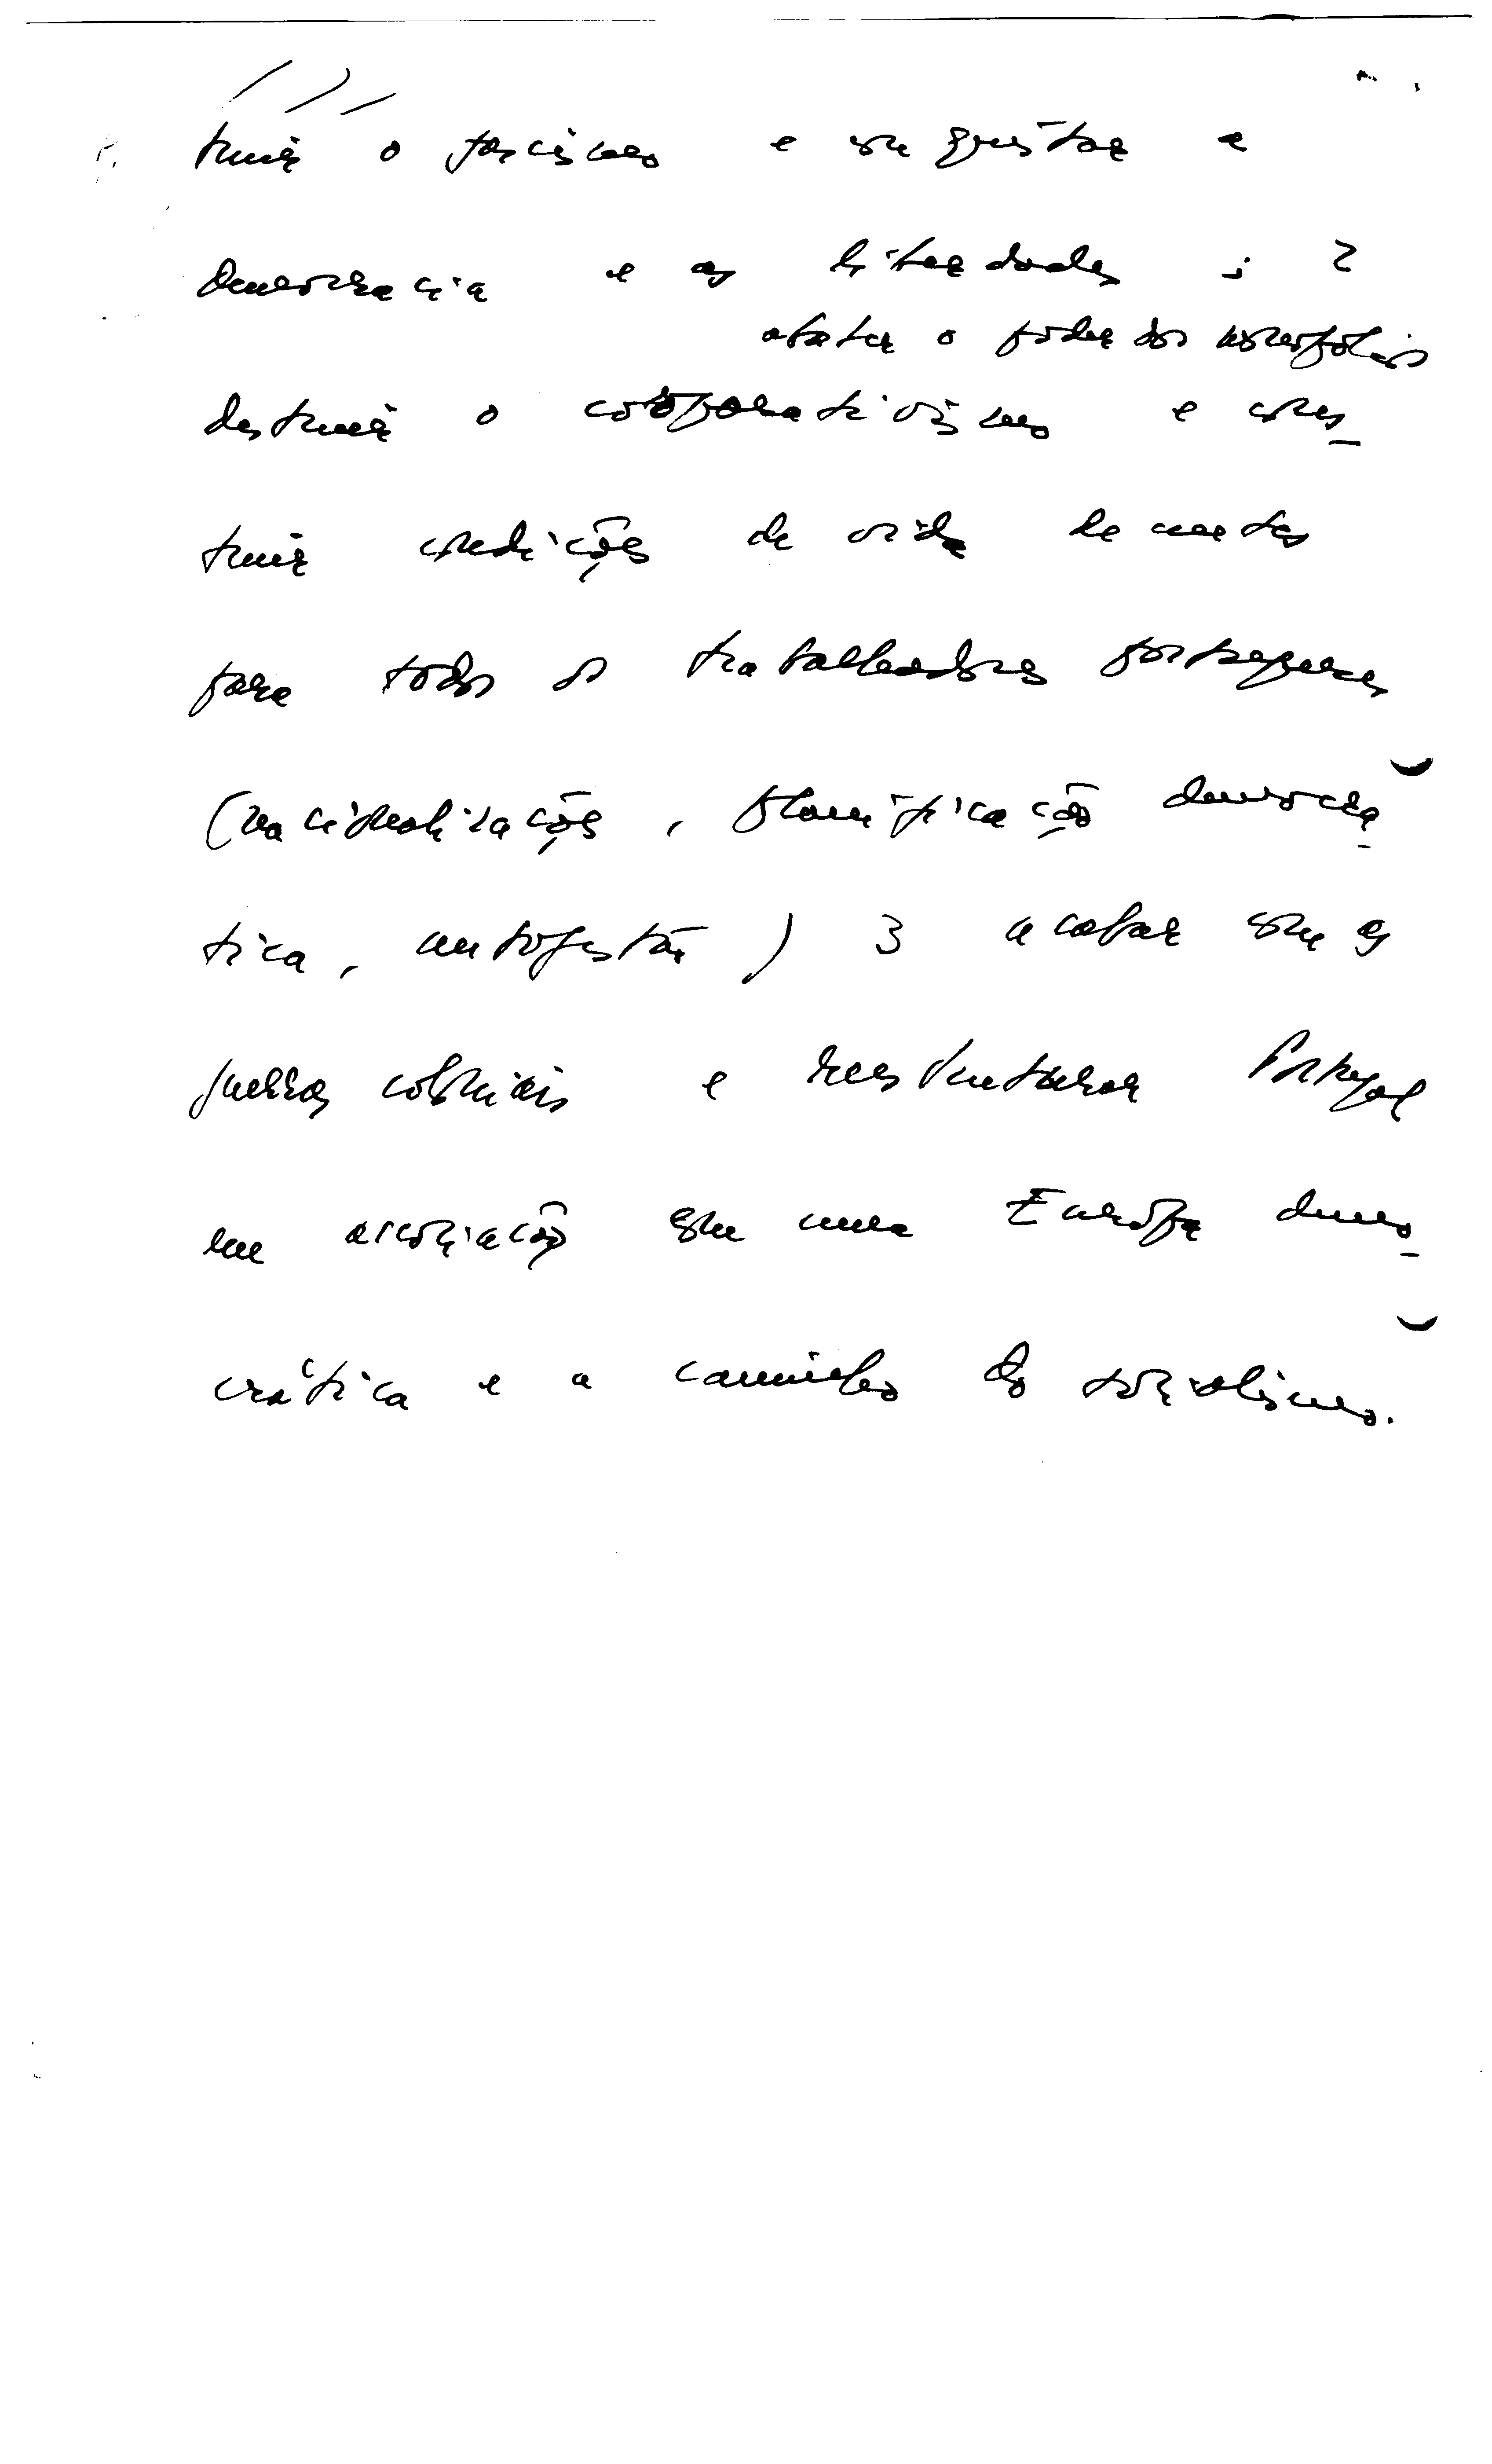 truir o fascismo e conquistar a
democracia e as liberdades ; 2
abater o poder dos monopólios
destruir o corporativismo e cons-
truir condições de vida decentes
para todos os trabalhadores portugueses
(nacionalizações, planificação democrá-
tica, autogestão) 3 acabar com as
guerras coloniais e reestruturar Portugal
em associação com uma Europa demo-
crática e a caminho do socialismo.